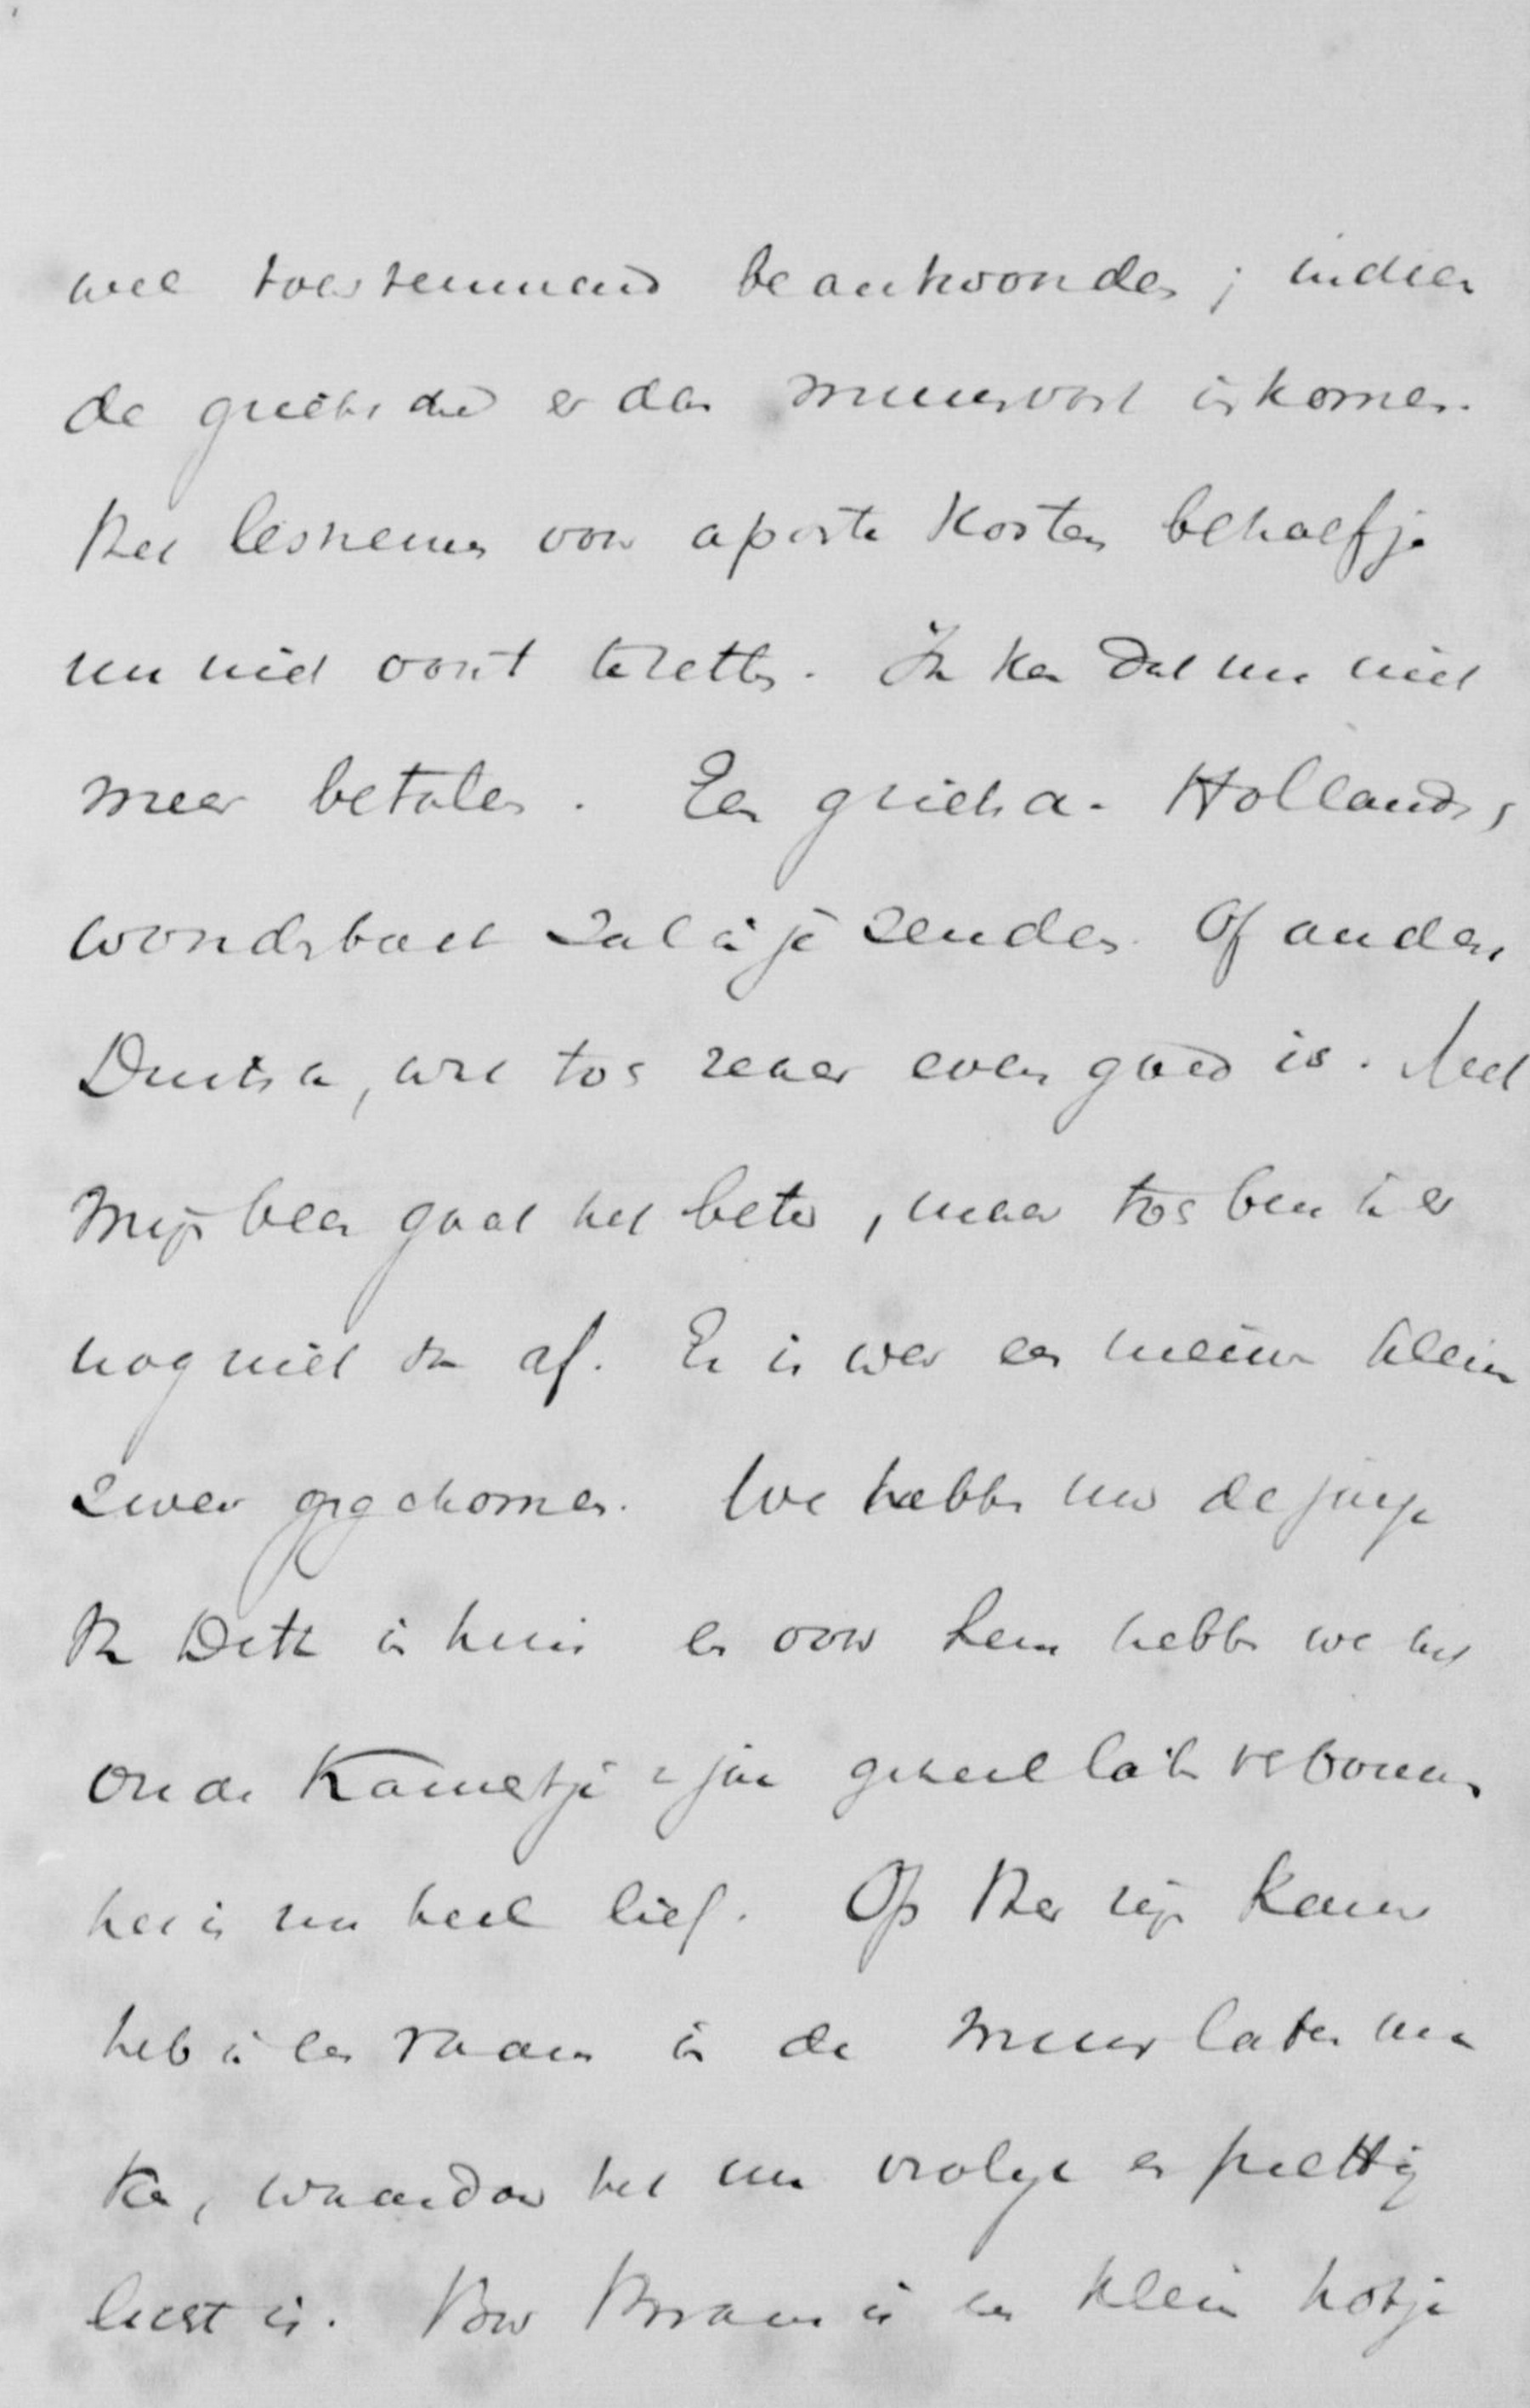 wel toestemmend beantwoorden; indien
de grieksche er dan in komen.
Het lesnemen voor aparte kosten behoef je
nu niet voort te zetten. Ik kan dat nu niet
meer betalen. Een grieksch - Hollandsch
woordboek zal ik je zenden. Of anders
Duitsch, wat toch zeker even goed is. Met
mijn been gaat het beter, maar toch ben ik er
nog niet van af. Er is weer een nieuw klein
zweer gekomen. We hebben nu de jonge
in huis en voor hem hebben we het
oude kamertje geheel laten verbouwen
het is nu heel lief. Op kamer
heb ik een raam in de muur laten
waardoor het nu vrolijk en prettig
licht is. Bram is een klein hokje